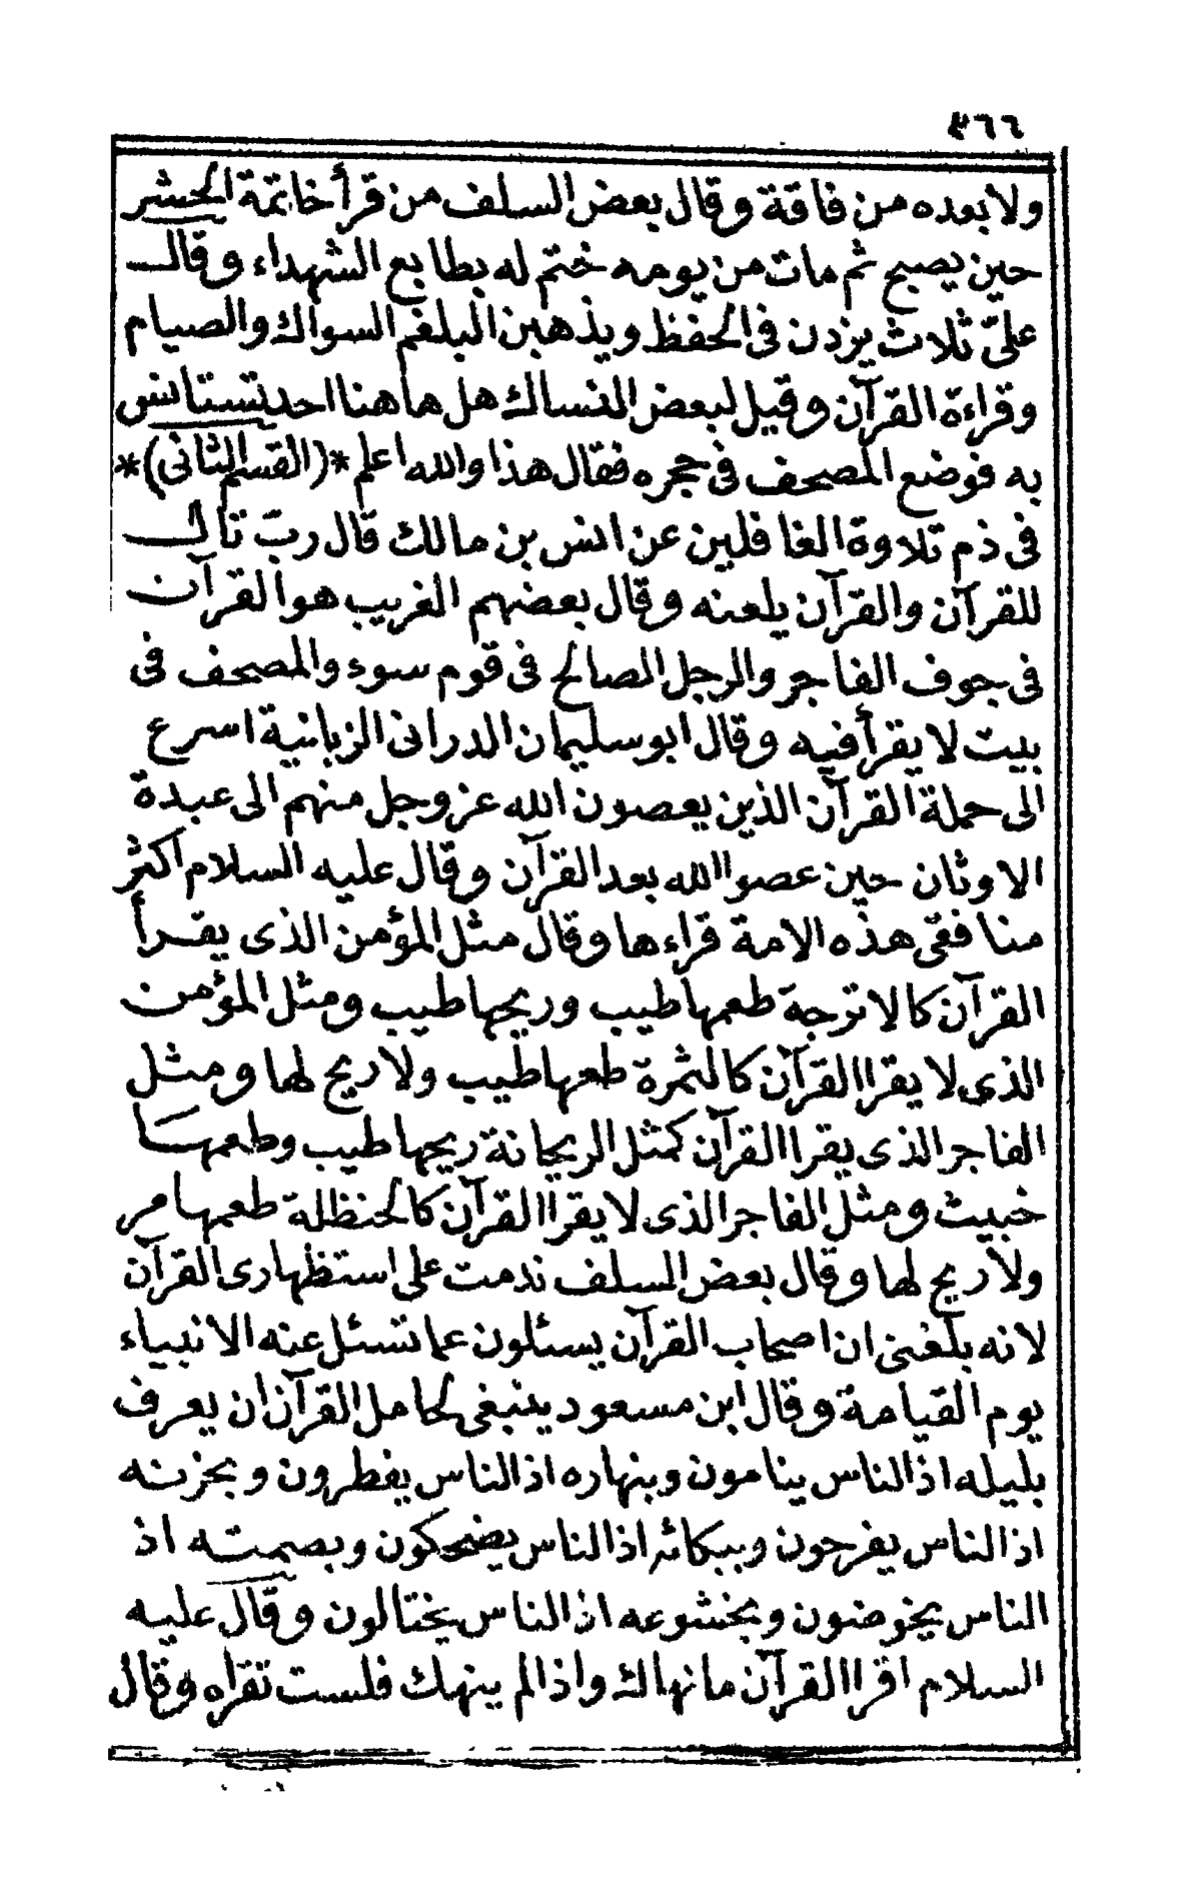 ٣٦٦
ولا بعده من فاقة وقال بعض السلف من قرأ خاتمة الحشر
حين يصبح ثم مات من يومه ختم له بطابع الشهداء وقال
علىّ ثلاث يزدن فى الحفظ ويذهبن البلغم السواك والصيام
وقراءة القرآن وقيل لبعض النساك هل هاهنا احد تستانس
به فوضع المصحف فى حجره فقال هذا والله اعلم *(القسم الثانى)*
فى ذم تلاوة الغافلين عن انس بن مالك قال ربّ تال
للقرآن والقرآن يلعنه وقال بعضهم الغريب هو القرآن
فى جوف الفاجر والرجل الصالح فى قوم سوء والمصحف فى
بيت لا يقرأ فيه وقال ابو سليمان الدرانى الزبانية اسرع
الى حملة القرآن الذين يعصون الله عز وجل منهم الى عبدة
الاوثان حين عصوا الله بعد القرآن وقال عليه السلام اكثر
منافقى هذه الامة قراءها وقال مثل المؤمن الذى يقرأ
القرآن كالاترجة طعمها طيب وريحها طيب ومثل المؤمن
الذى لا يقرا القرآن كالثمرة طعمها طيب ولا ريح لها ومثل
الفاجر الذى يقرا القرآن كمثل الريحانة ريحها طيب وطعمها
خبيث ومثل الفاجر الذى لا يقرا القرآن كالحنظلة طعمها مر
ولا ريح لها وقال بعض السلف ندمت على استظهارى القرآن
لانه بلغنى ان اصحاب القرآن يسئلون عما تسئل عنه الانبياء
يوم القيامة وقال ابن مسعود ينبغى لحامل القرآن ان يعرف
بليله اذ الناس ينامون وبنهاره اذ الناس يفطرون وبحزنه
اذ الناس يفرحون وببكائه اذ الناس يضحكون وبصمته اذ
الناس يخوضون وبخشوعه اذ الناس يختالون وقال عليه
السلام اقرا القرآن ما نهاك واذا لم ينهك فلست تقراه وقال